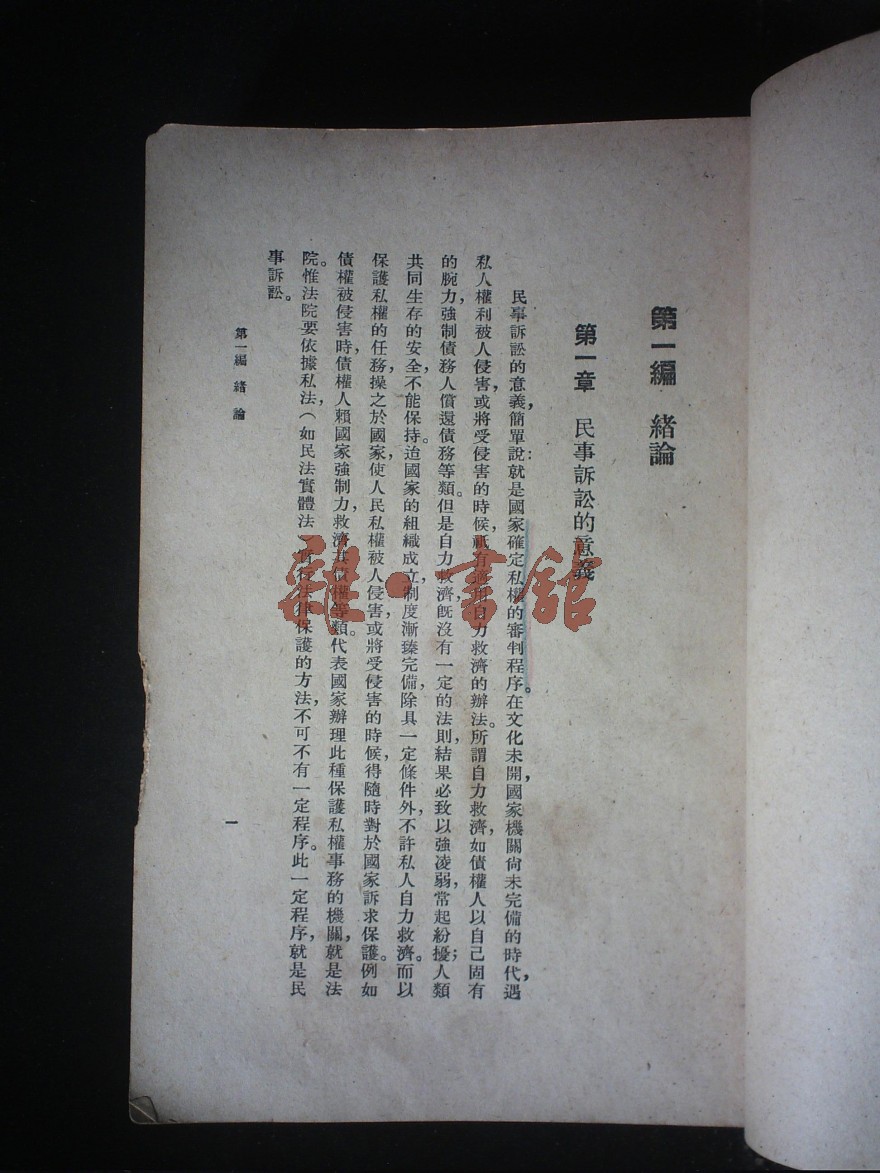 第一編　緒論
第一章　民事訴訟的意義
民事訴訟的意義，簡單說：就是國家確定私權的審判程序。在文化未開，國家機關尙未完備的時代，遇
私人權利被人侵害，或將受侵害的時候，祇有適用自力救濟的辦法。所謂自力救濟，如債權人以自己固有
的腕力，強制債務人償還債務等類。但是自力救濟，旣沒有一定的法則，結果必致以強凌弱，常起紛擾；人類
共同生存的安全，不能保持。迨國家的組織成立，制度漸臻完備，除具一定條件外，不許私人自力救濟。而以
保護私權的任務，操之於國家，使人民私權被人侵害，或將受侵害的時候，得隨時對於國家訴求保護。例如
債權被侵害時，債權人賴國家強制力，救濟其債權等類。代表國家辦理此種保護私權事務的機關，就是法
院。惟法院要依據私法，（如民法實體法 實行法律保護的方法，不可不有一定程序。此一定程序，就是民
事訴訟。
第一編　緒論
一
雜·書館